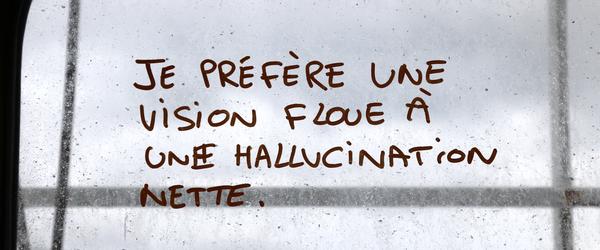 JE PRÉFÈRE UNE
VISION FLOUE À
UNE HALLUCINATION
NETTE.